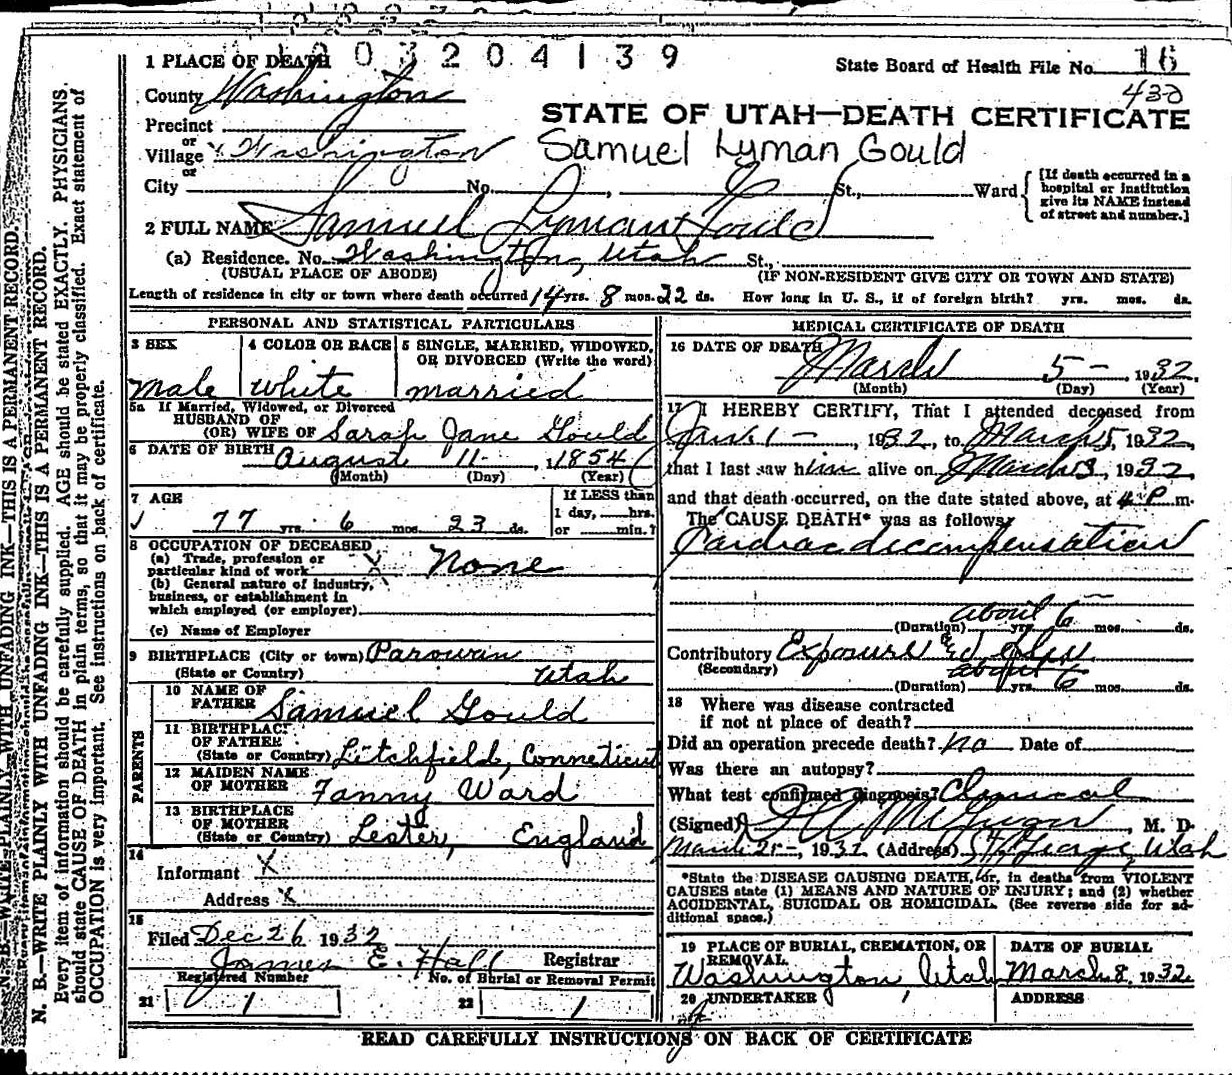 1003204139
1 PLACE OF DEATH
State Board of Health File No. 16
432
County Washington
STATE OF UTAH—DEATH CERTIFICATE
Precinct
or
Village Washington
Samuel Lyman Gould
or
City No. St., Ward
[If death occurred in a hospital or institution give its NAME instead of street and number.]
2 FULL NAME Samuel Lyman Gould
(a) Residence. No. Washington, Utah St.,
(USUAL PLACE OF ABODE) (IF NON-RESIDENT GIVE CITY OR TOWN AND STATE)
Length of residence in city or town where death occurred 14 yrs. 8 mos. 22 ds. How long in U. S., if of foreign birth? yrs. mos. ds.
PERSONAL AND STATISTICAL PARTICULARS
3 SEX 4 COLOR OR RACE 5 SINGLE, MARRIED, WIDOWED,
OR DIVORCED (Write the word)
male white married
5a If Married, Widowed, or Divorced
HUSBAND OF
(OR) WIFE OF Sarah Jane Gould
6 DATE OF BIRTH August 11 1854
(Month) (Day) (Year)
7 AGE If LESS than
77 yrs. 6 mos. 23 ds. 1 day, hrs.
or min.?
8 OCCUPATION OF DECEASED
(a) Trade, profession or
particular kind of work None
(b) General nature of industry,
business, or establishment in
which employed (or employer)
(c) Name of Employer
9 BIRTHPLACE (City or town) Parowan
(State or Country) Utah
PARENTS
10 NAME OF
FATHER Samuel Gould
11 BIRTHPLACE
OF FATHER
(State or Country) Litchfield, Conneticut
12 MAIDEN NAME
OF MOTHER Fanny Ward
13 BIRTHPLACE
OF MOTHER
(State or Country) Lester, England
14
Informant X
Address X
15
Filed Dec 26 1932
James E. Hall Registrar
Registered Number No. of Burial or Removal Permit
21 1 22 1
MEDICAL CERTIFICATE OF DEATH
16 DATE OF DEATH March 5 - 1932
(Month) (Day) (Year)
17 I HEREBY CERTIFY, That I attended deceased from
Jan 1 -, 1932, to March 5, 1932,
that I last saw him alive on March 3, 1932
and that death occurred, on the date stated above, at 4 P. m.
The CAUSE DEATH* was as follows:
Cardiac decompensation
about 6
(Duration) yrs. mos. ds.
Contributory Exposure &
(Secondary) about 6
(Duration) yrs. mos. ds.
18 Where was disease contracted
if not at place of death?
Did an operation precede death? no Date of
Was there an autopsy?
What test confirmed diagnosis? Clinical
(Signed) M. D.
March 21 -, 1932 (Address) St George, Utah
*State the DISEASE CAUSING DEATH, or, in deaths from VIOLENT
CAUSES state (1) MEANS AND NATURE OF INJURY; and (2) whether
ACCIDENTAL, SUICIDAL OR HOMICIDAL. (See reverse side for ad-
ditional space.)
19 PLACE OF BURIAL, CREMATION, OR DATE OF BURIAL
REMOVAL
Washington Utah March 8, 1932
20 UNDERTAKER ADDRESS
READ CAREFULLY INSTRUCTIONS ON BACK OF CERTIFICATE
N. B.—WRITE PLAINLY WITH UNFADING INK—THIS IS A PERMANENT RECORD.
N. B.—WRITE PLAINLY WITH UNFADING INK—THIS IS A PERMANENT RECORD.
Every item of information should be carefully supplied. AGE should be stated EXACTLY. PHYSICIANS
should state CAUSE OF DEATH in plain terms, so that it may be properly classified. Exact statement of
OCCUPATION is very important. See instructions on back of certificate.